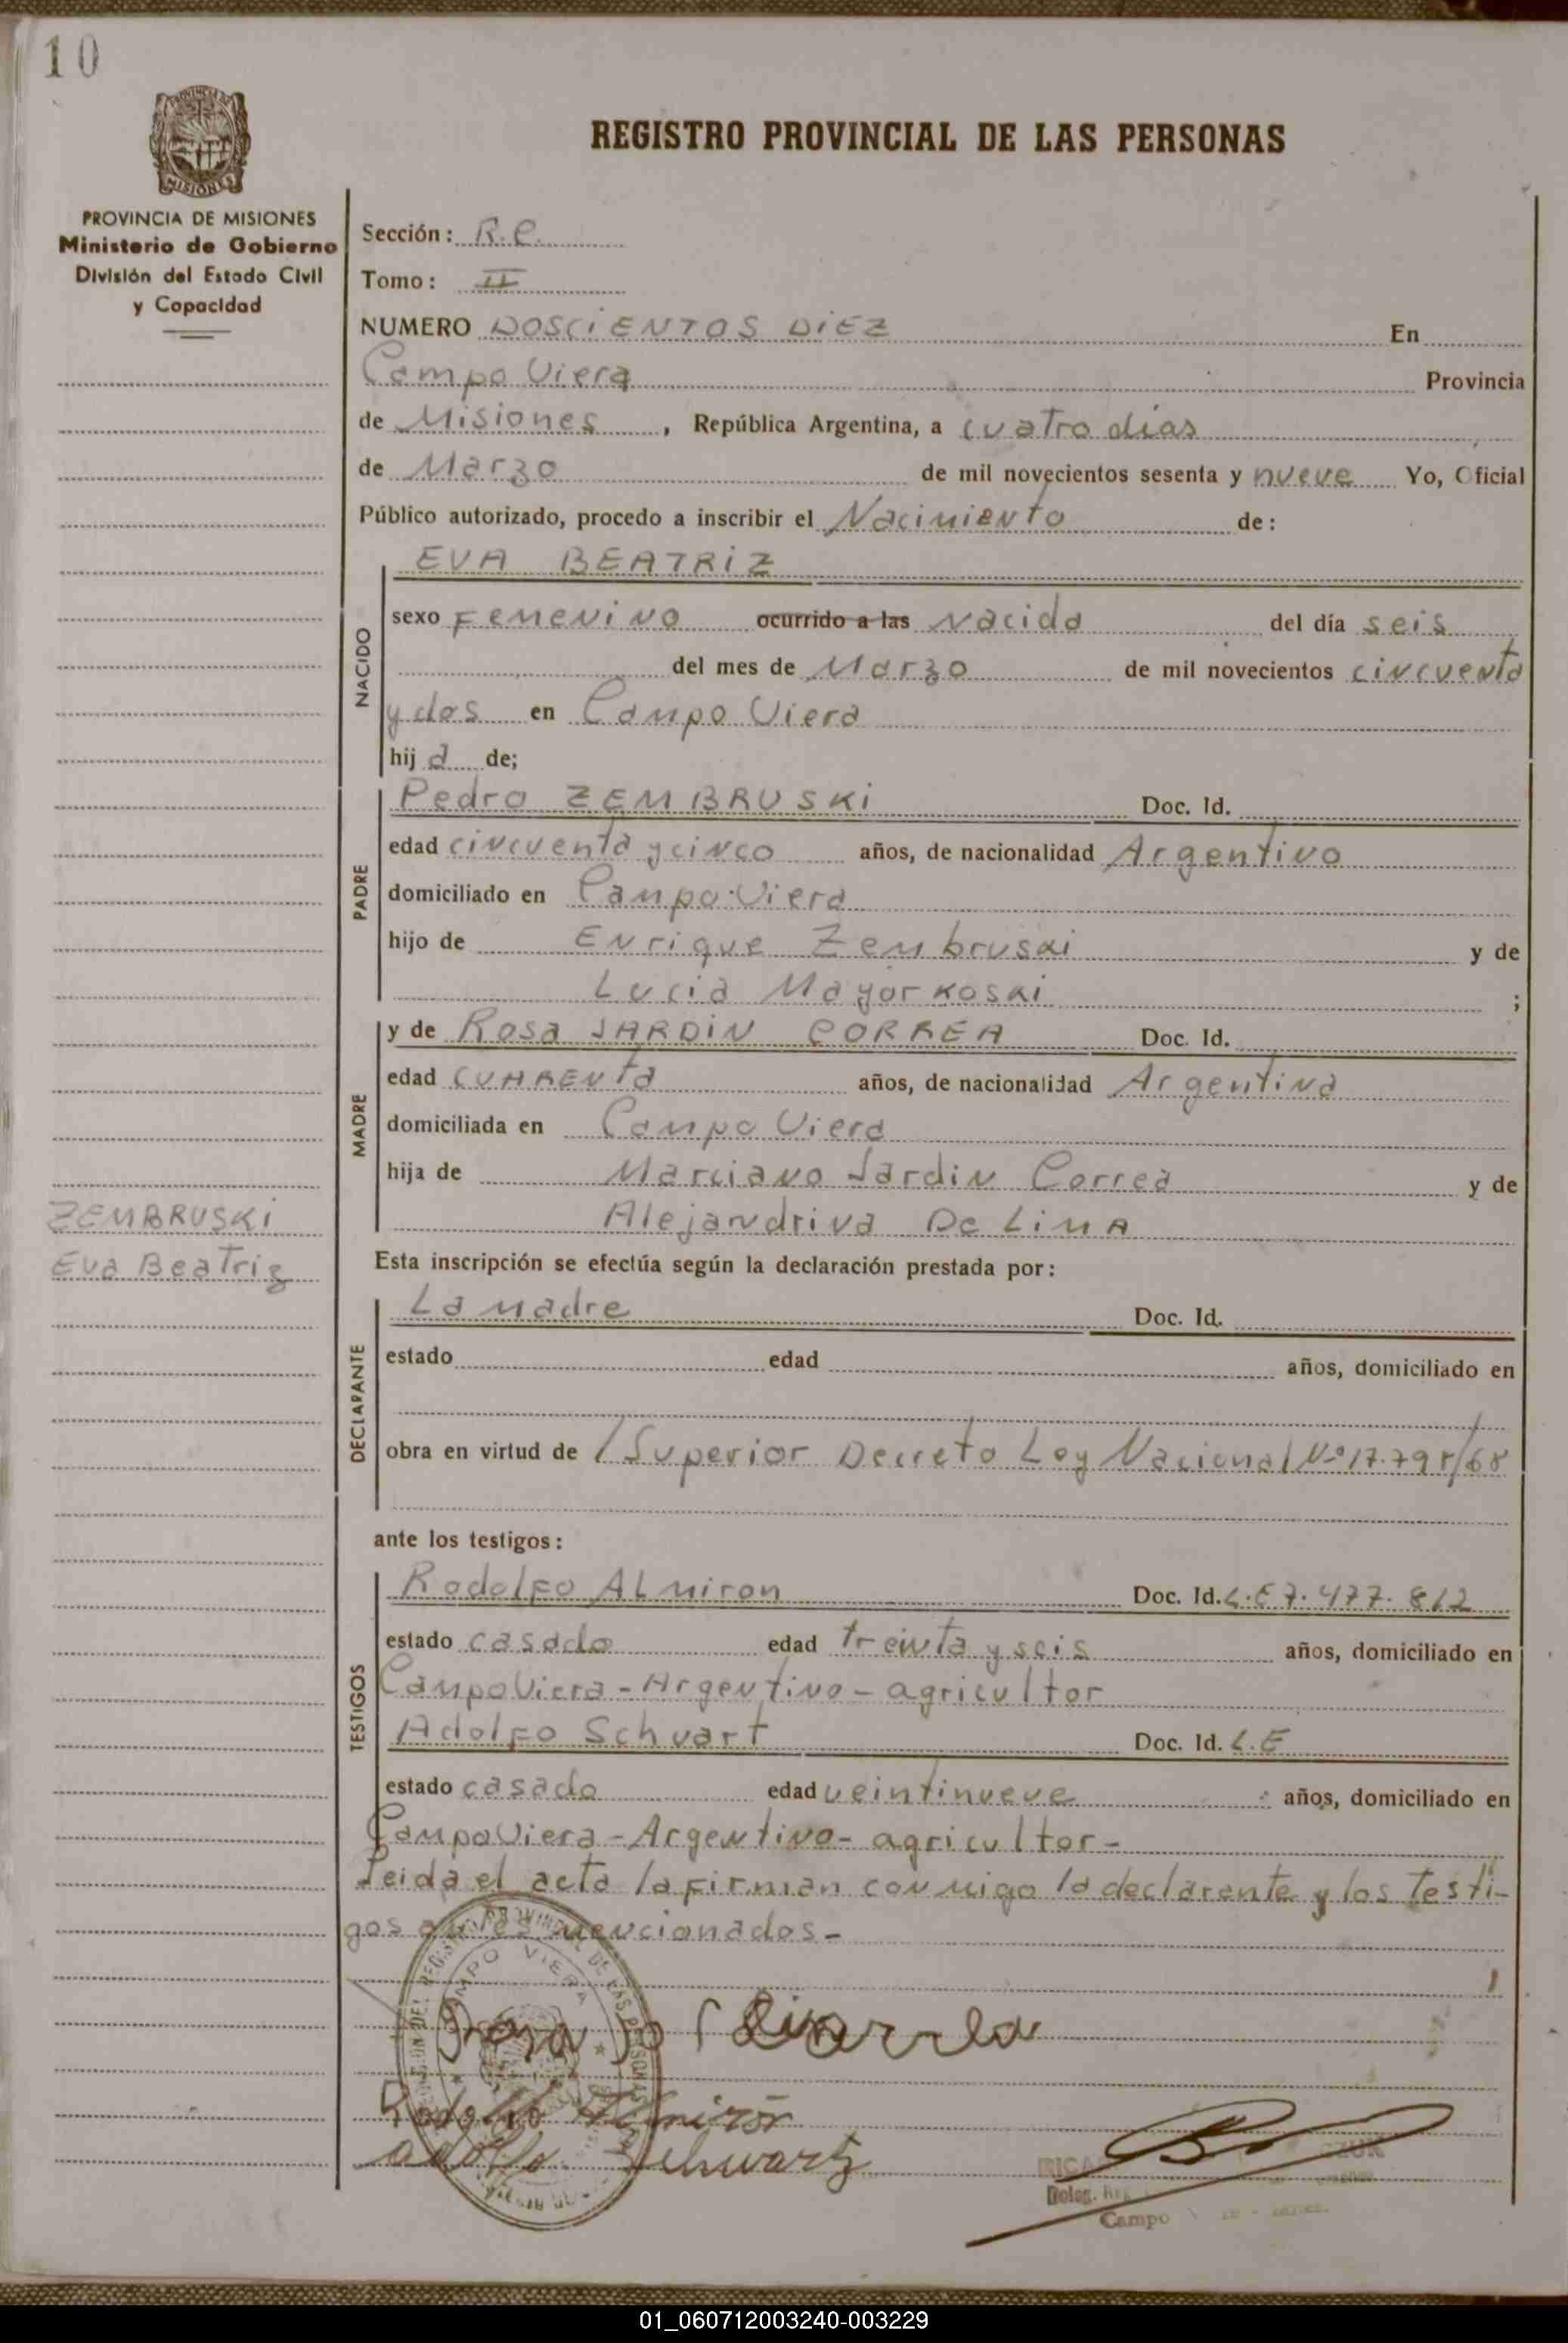 10
PROVINCIA DE MISIONES
Ministerio de Gobierno
División del Estado Civil
y Capacidad
REGISTRO PROVINCIAL DE LAS PERSONAS
Sección: R.C.
Tomo: II
NUMERO DOSCIENTOS DIEZ En
Campo Viera Provincia
de Misiones, República Argentina, a cuatro días
de Marzo de mil novecientos sesenta y nueve Yo, Oficial
Público autorizado, procedo a inscribir el Nacimiento de:
NACIDO
EVA BEATRIZ
sexo Femenino ocurrido a las Nacida del día seis
del mes de Marzo de mil novecientos cincuenta
y dos en Campo Viera
hija de;
PADRE
Pedro ZEMBRUSKI Doc. Id.
edad cincuenta y cinco años, de nacionalidad Argentino
domiciliado en Campo Viera
hijo de Enrique Zembruski y de
Lucia Mayorkoski ;
MADRE
y de Rosa JARDIN CORREA Doc. Id.
edad CUARENTA años, de nacionalidad Argentina
domiciliada en Campo Viera
hija de Marciano Jardin Correa y de
Alejandrina De LIMA
ZEMBRUSKI
Eva Beatriz
Esta inscripción se efectúa según la declaración prestada por:
DECLARANTE
La madre Doc. Id.
estado edad años, domiciliado en
obra en virtud de / Superior Decreto Ley Nacional Nº 17.798/68
ante los testigos:
TESTIGOS
Rodolfo ALmiron Doc. Id. L.E 7.477.812
estado casado edad treinta y seis años, domiciliado en
Campo Viera - Argentino - agricultor
Adolfo Schvart Doc. Id. L.E
estado casado edad veintinueve años, domiciliado en
Campo Viera - Argentino - agricultor -
Leida el acta la firman conmigo la declarante y los testi-
gos antes mencionados -
CAMPO VIERA
Rodolfo Almirón
adolfo Schwartz
Deleg.
Campo
01_060712003240-003229